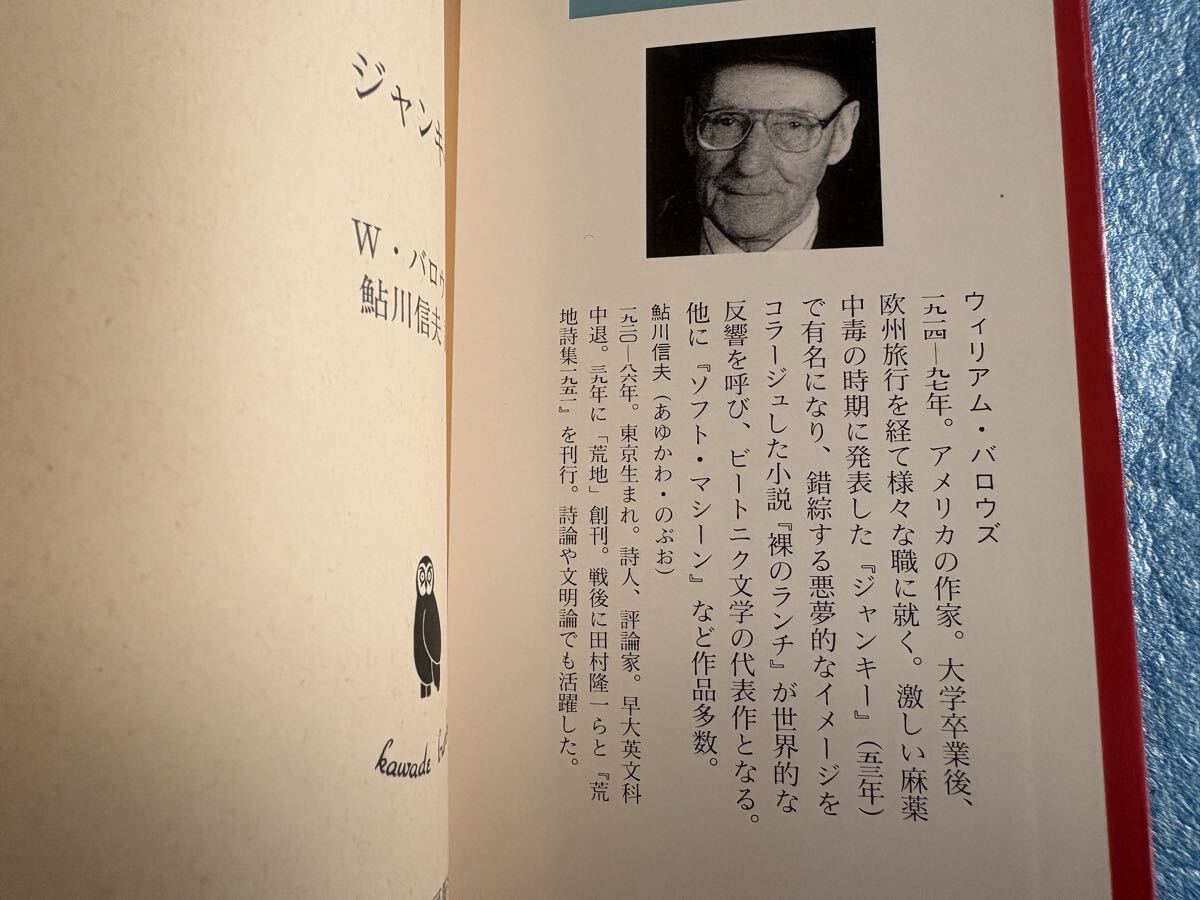 ウィリアム・バロウズ
一九一四―九七年。アメリカの作家。大学卒業後、
欧州旅行を経て様々な職に就く。激しい麻薬
中毒の時期に発表した『ジャンキー』（五三年）
で有名になり、錯綜する悪夢的なイメージを
コラージュした小説『裸のランチ』が世界的な
反響を呼び、ビートニク文学の代表作となる。
他に『ソフト・マシーン』など作品多数。
鮎川信夫（あゆかわ・のぶお）
一九二〇―八六年。東京生まれ。詩人、評論家。早大英文科
中退。三九年に「荒地」創刊。戦後に田村隆一らと『荒
地詩集一九五一』を刊行。詩論や文明論でも活躍した。
ジャンキ
W・バロウ
鮎川信夫
kawade